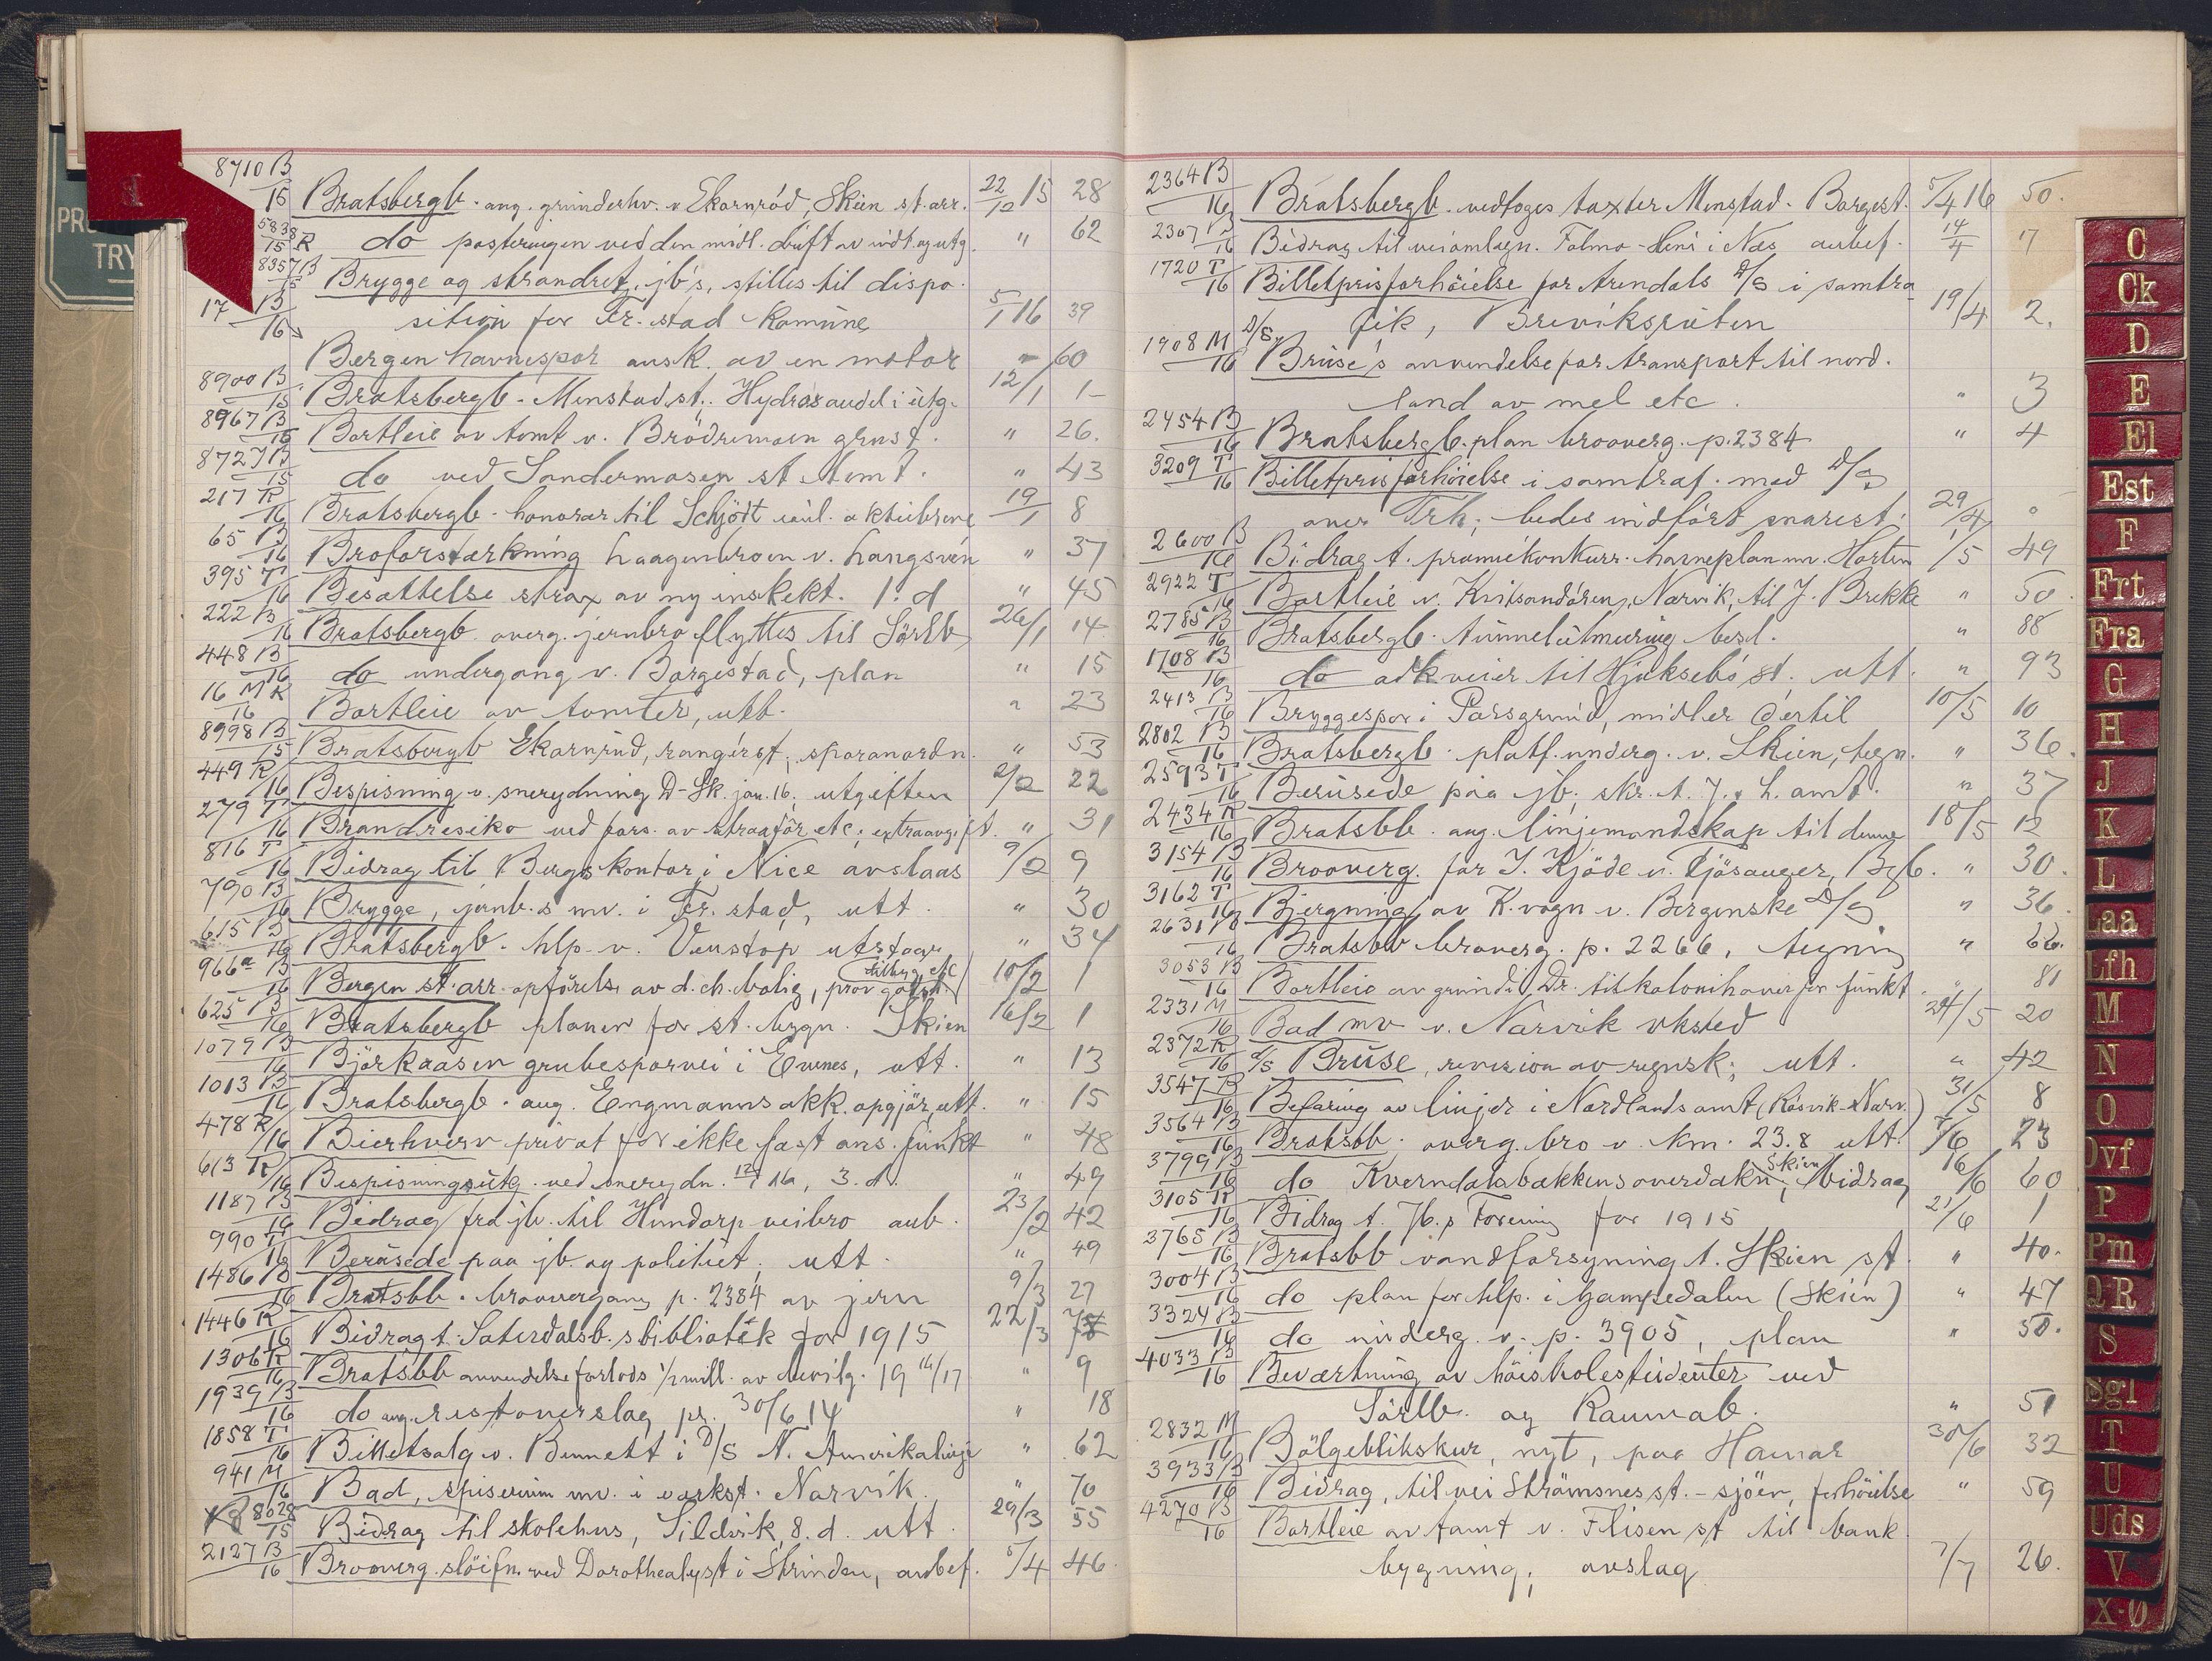 8710 B/15 Bratsbergb. ang. grunderhv. v Ekornrød, Skien st. arr. 22/12 15 28
5838/15 R do posteringen ved den midl. drift av indt. og utg. " 62
8357 B/15 Brygge og strandret, jb's, stilles til dispo-
17 B/16 sition for Fr.stad Komune 5/1 16 39
Bergen havnespor ansk. av en motor " 60
8900 B/15 Bratsbergb. Menstad st. Hydros andel i utg. 12/1 1
8967 B/15 Bortleie av tomt v. Brödremoen grust. " 26.
8727 B/15 do ved Sandermosen st. tomt. " 43
217 R/16 Bratsbergb. honorar til Schjött 19/1 8
65 B/16 Broforstærkning Haagenbroen v. " 37
395 T/16 Besættelse strax av ny inspekt. 1. d " 45
222 B/16 Bratsbergb. overg. jernbro flyttes til Sörlb 26/1 14
448 B/16 do undergang v. Borgestad, plan " 15
16 MK/16 Bortleie av tomter, utt. " 23
8998 B/15 Bratsbergb Ekornrud, rangérst., sporanordn. " 53
449 R/16 Bespisning v. snerydning D-Sk. jan. 16, utgiften 2/2 22
279 T/16 Brandresiko ved fors. av straafôr etc; extraavgift. " 31
816 T/16 Bidrag til Bergs kontor i Nice avslaas 9/2 9
790 B/16 Brygge, jernb.s mv. i Fr.stad, utt. " 30
615 B/16 Bratsbergb. hlp. v. Venstöp utstaar " 34
966a B/16 Bergen st. arr. opförelse av d. ch. bolig, 10/2 1
625 B/16 Bratsbergb planer for st. bygn. Skien 16/2 1
1079 B/16 Björkaasen grubesporvei i Evenes, utt. " 13
1013 B/16 Bratsbergb. ang. Engmanns akk. opgjör, utt. " 15
478 R/16 Bierhverv privat for ikke fast ans. funkt " 48
613 R/16 Bespisningsutg. ved snerydn. 16, 3. d. " 49
1187 B/16 Bidrag fra jb. til Hundorp veibro anb. 23/2 42
990 T/16 Berusede paa jb. og politiet, utt. " 49
1486 B/16 Bratsbb. broovergang p. 2384 av jern 9/3 27
1446 R/16 Bidrag t. Sæterdalsb.s bibliotek for 1915 22/3
1306 R/16 Bratsbb anvendelse forlods 1/2 mill. av bevilg. 19 16/17 " 9
1939 B/16 do ang. restoverslag pr. 30/6 14 " 18
1858 T/16 Billetsalg v. Bennett i D/S N. Amerikalinje " 62
941 M/16 Bad, spiserum mv. i verkst. Narvik. " 70
8028/15 Bidrag til skolehus, Sildvik, 8. d. utt. 29/3 55
2127 B/16 Brooverg. slöifn. ved Dorothealyst i Strinden, anbef. 5/4 46.
2364 B/16 Bratsbergb. vedtoges taxter Menstad-Borgest. 5/4 16 50.
2307/16 Bidrag til veiomlægn. i Næs anbef. 14/4 7
1720 T/16 Billetprisforhöielse for Arendals D/S i samtra-
fik, Breviksruten 19/4 2.
1908 M/16 D/S. Bruse's anvendelse for transport til nord-
land av mel etc. " 3
2454 B/16 Bratsbergb. plan brooverg. p. 2384 " 4
3209 T/16 Billetprisforhöielse i samtraf. med D/S
over Trh; bedes indfört snarest. 29/4
2600 B/16 Bidrag t. præmiekonkurr. havneplan mv. Horten 1/5 49
2922 T/16 Bortleie v. Kvitsandören, Narvik, til J. Brekke " 50.
2785 B/16 Bratsbergb. tunnelutmuring besl. " 88
1708 B/16 do adk.veier til Hjuksebö st. utt. " 93
2413 B/16 Bryggespor i Porsgrund, midler dertil 10/5 10
2802 B/16 Bratsbergb. platf. underg. v. Skien, tegn. " 36.
2593 T/16 Berusede paa jb; skr. t. J. & L. amt. " 37
2434 R/16 Bratsbb. ang. linjemandskap til denne 18/5 12
3154 B/16 Brooverg. for J. Kjöde v. Fjösanger, Bgb. " 30.
3162 T/16 Bjergning av K. vogn v. Bergenske D/S " 36
2631 B/16 Bratsbb brooverg. p. 2266, tegning " 66.
3053 B/16 Bortleie av grund i Dr. til kolonihaver for funkt. " 81
2331 M/16 Bad mv v. Narvik vksted 24/5 20
2372 R/16 D/S Bruse, revision av regnsk; utt. " 42
3547 B/16 Befaring av linjer i Nordlands amt (Rösvik-Narv.) 31/5 8
3564 B/16 Bratsbb. overg. bro v. km. 23.8 utt. 7/6 23
3799 B/16 do Kverndalsbækkens overdækn, Skien, bidrag 16/6 60
3105 R/16 Bidrag t. Jb.s Forening for 1915 21/6 1
3765 B/16 Bratsbb vandforsyning t. Skien st. " 40.
3004 B/16 do plan for hlp. i Gampedalen (Skien) " 47
3324 B/16 do underg. v. p. 3905, plan " 50.
4033 B/16 Beværtning av höiskolestudenter ved
Sörlb. og Raumab. " 51
2832 M/16 Bölgeblikskur, nyt, paa Hamar 30/6 32
3933 B/16 Bidrag, til vei Strömsnes st. - sjöen, forhöielse " 59
4270 B/16 Bortleie av tomt v. Flisen st til bank-
bygning, avslag 7/7 26.
C
Ck
D
E
El
Est
F
Frt
Fra
G
H
J
K
L
Laa
Lfh
M
N
O
Ovf
P
Pm
QR
S
Sgl
T
U
Uds
V
X-Ø